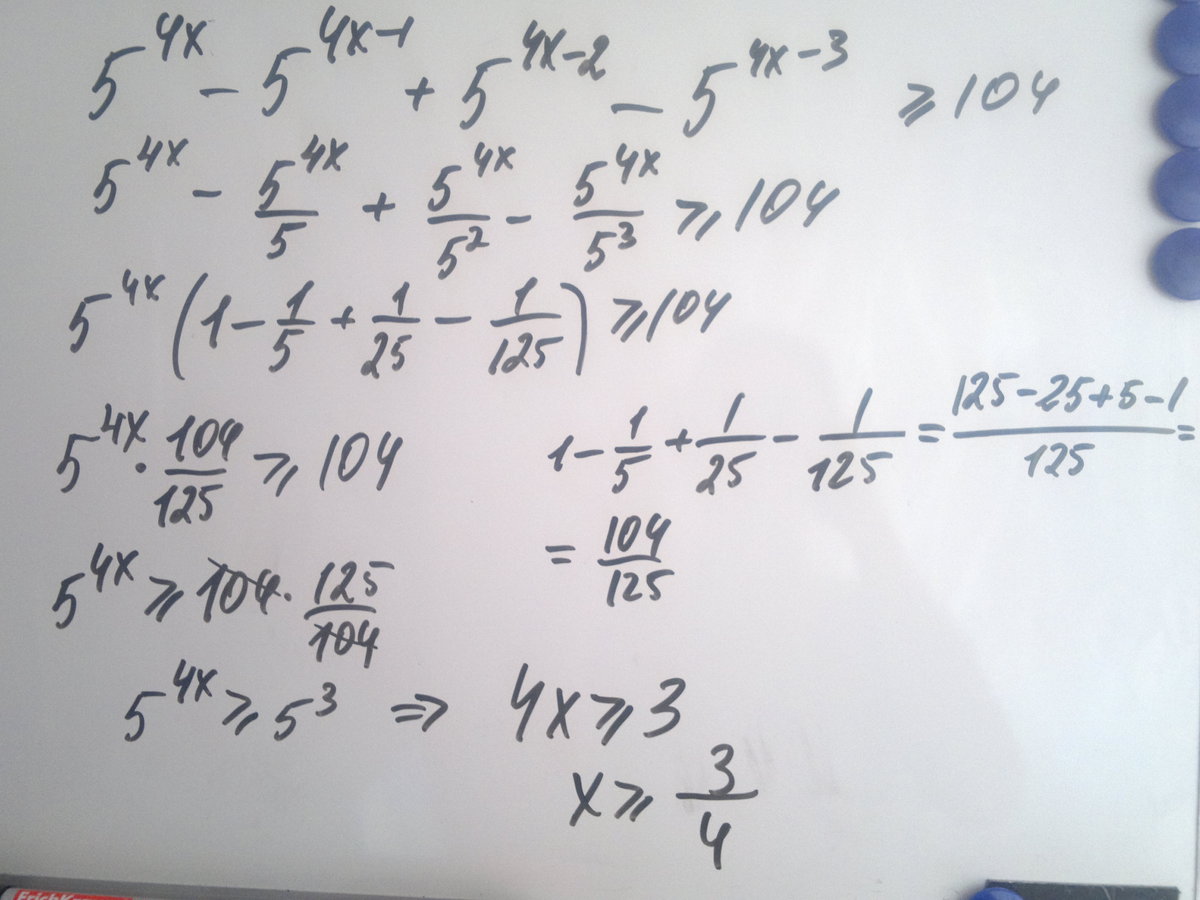 5^{4x} - 5^{4x-1} + 5^{4x-2} - 5^{4x-3} ⩾ 104
5^{4x} - \frac{5^{4x}}{5} + \frac{5^{4x}}{5^2} - \frac{5^{4x}}{5^3} ⩾ 104
5^{4x} (1 - \frac{1}{5} + \frac{1}{25} - \frac{1}{125}) ⩾ 104
5^{4x} · \frac{104}{125} ⩾ 104
1 - \frac{1}{5} + \frac{1}{25} - \frac{1}{125} = \frac{125-25+5-1}{125} =
= \frac{104}{125}
5^{4x} ⩾ 104 · \frac{125}{104}
5^{4x} ⩾ 5^3 ⇒ 4x ⩾ 3
x ⩾ \frac{3}{4}